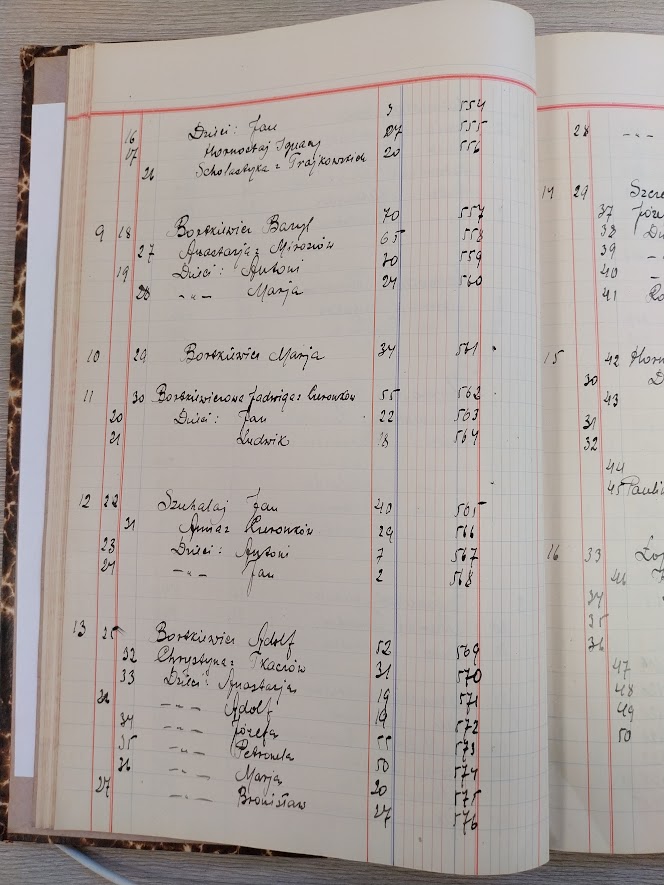 16 Dzieci: Jan 3 554
17 Hornostaj Ignacy 27 555
26 Scholastyka z Trajkowskich 20 556
9 18 Bortkiewicz Bazyl 70 557
27 Anastazja z Mirosiów 65 558
19 Dzieci: Antoni 30 559
28 -"- Marja 24 560
10 29 Bortkiewicz Marja 34 561
11 30 Bortkiewiczowa Jadwiga z 55 562
20 Dzieci: Jan 22 563
21 Ludwik 18 564
12 22 Szuhalaj Jan 40 565
31 Anna z 29 566
23 Dzieci: Antoni 7 567
24 -"- Jan 2 568
13 25 Bortkiewicz Adolf 52 569
32 Chrystyna z Tkaczów 31 570
33 Dzieci: Anastazja 19 571
26 -"- Adolf 19 572
34 -"- Józefa 573
35 -"- Petronela 50 574
36 -"- Marja 20 575
27 -"- Bronisław 27 576
28 -"-
14 29
37
38
39 -"-
40 -"-
41
15 42
30
43
31
32
44
45
16 33
46
34
35
36
47
48
49
50